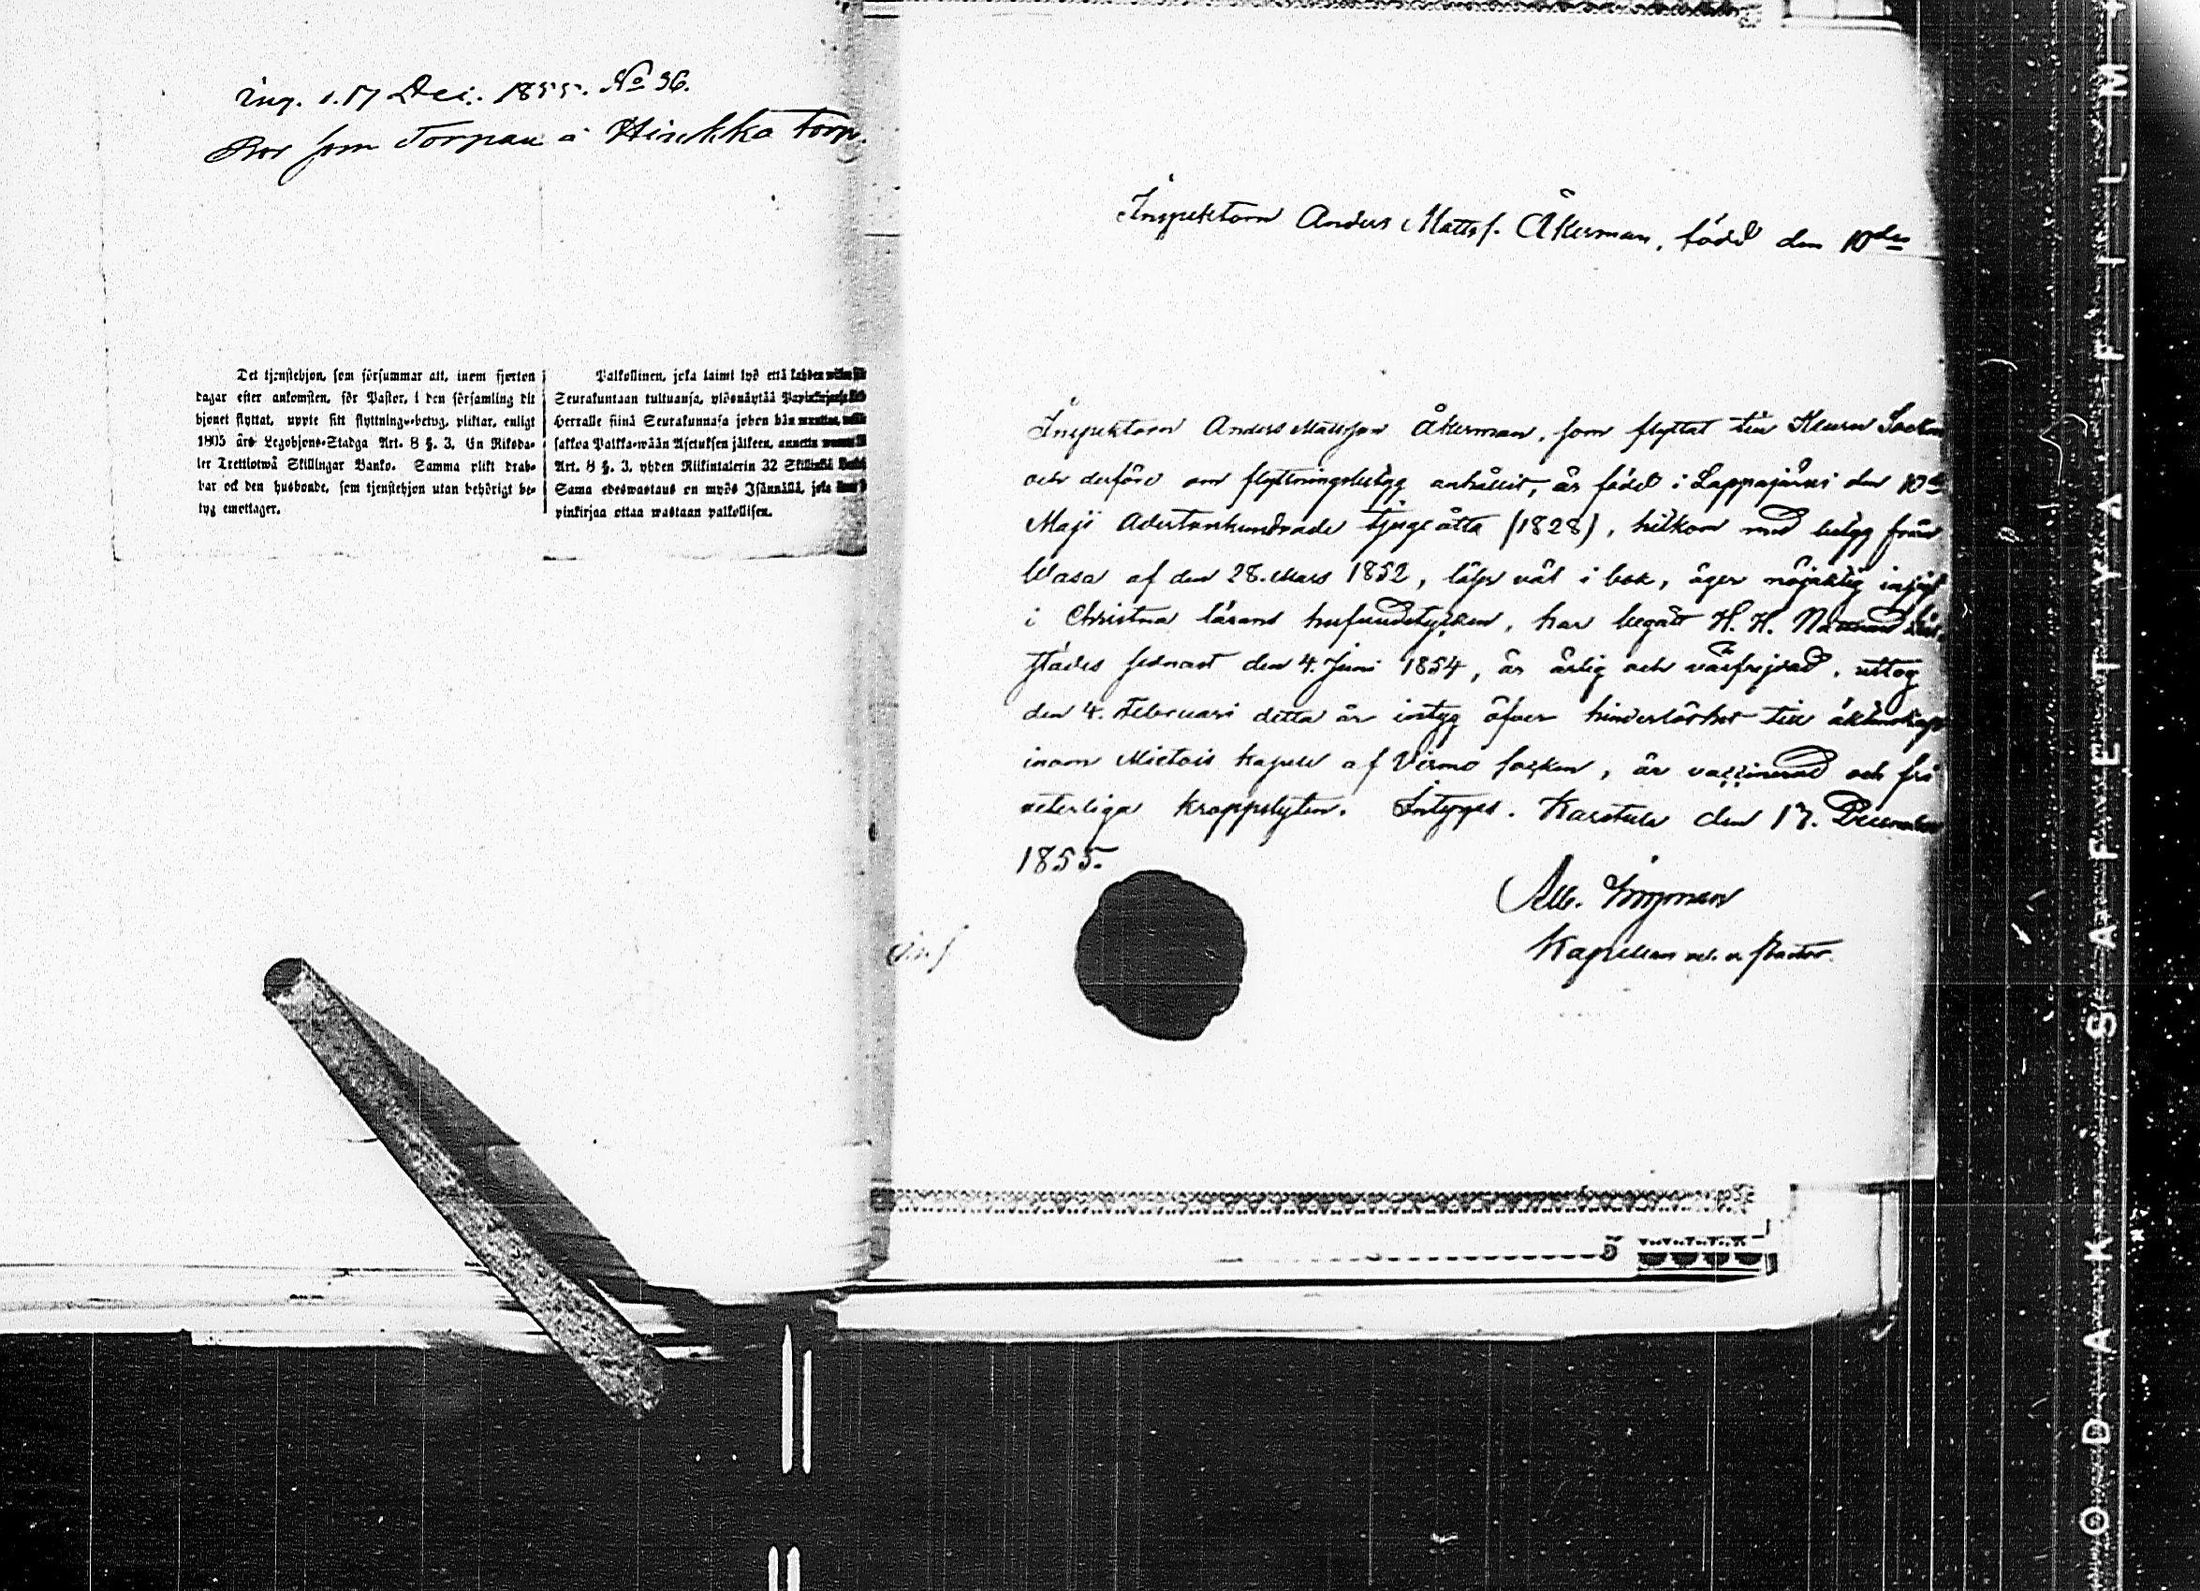 ing. d. 17 Dec. 1855. No 36.
Bor som Torpare å Hirskko torp.
Det tjenstehjon, som försummar att, inom fjorton
dagar efter ankomsten, för Pastor, i den församling dit
hjonet flyttat, uppte sitt flyttnings-betyg, pliktar, enligt
1805 års Legohjons-Stadga Art. 8 §. 3. En Riksda-
ler Trettiotwå Skillingar Banko. Samma plikt drab-
bar ock den husbonde, som tjenstehjon utan behörigt be-
tyg emottager.
Palkollinen, joka laimi lyö että kahden
Seurakuntaan tultuansa, ylösnäytää
Herralle siinä Seurakunnasa johon hän
sakkoa Palkka-wään Asetuksen jälkeen,
Art. 8 §. 3, yhden Riikintalerin 32 Skillinkiä
Sama edeswastaus on myös Isännällä, jota
pinkirjaa ottaa wastaan palkollisen.
Inspektorn Anders Mattss. Åkerman, född den 10de
Inspektorn Anders Mattsson Åkerman, som flyttat till Keuru Socken
och derföre om flyttningsbetyg anhållit, är född i Lappajärvi den 10de
Maji Adertonhundrade tjugeåtta (1828), hitkom med betyg från
Wasa af den 28. Mars 1852, läser väl i bok, äger nöjaktig insigt
i Christna lärans hufvudstycken, har begått H. H. Nattvard här-
städes sednast den 4. Juni 1854, är ärlig och välfrejdad, uttog
den 4. Februari detta år intyg öfver hinderlöshet till äktenskap
inom Mietois kapell af Virmo socken, är vaccinerad och fri
veterliga kroppslyten. Intygas. Karstula den 17. December
1855.
Alb.
Kapellan